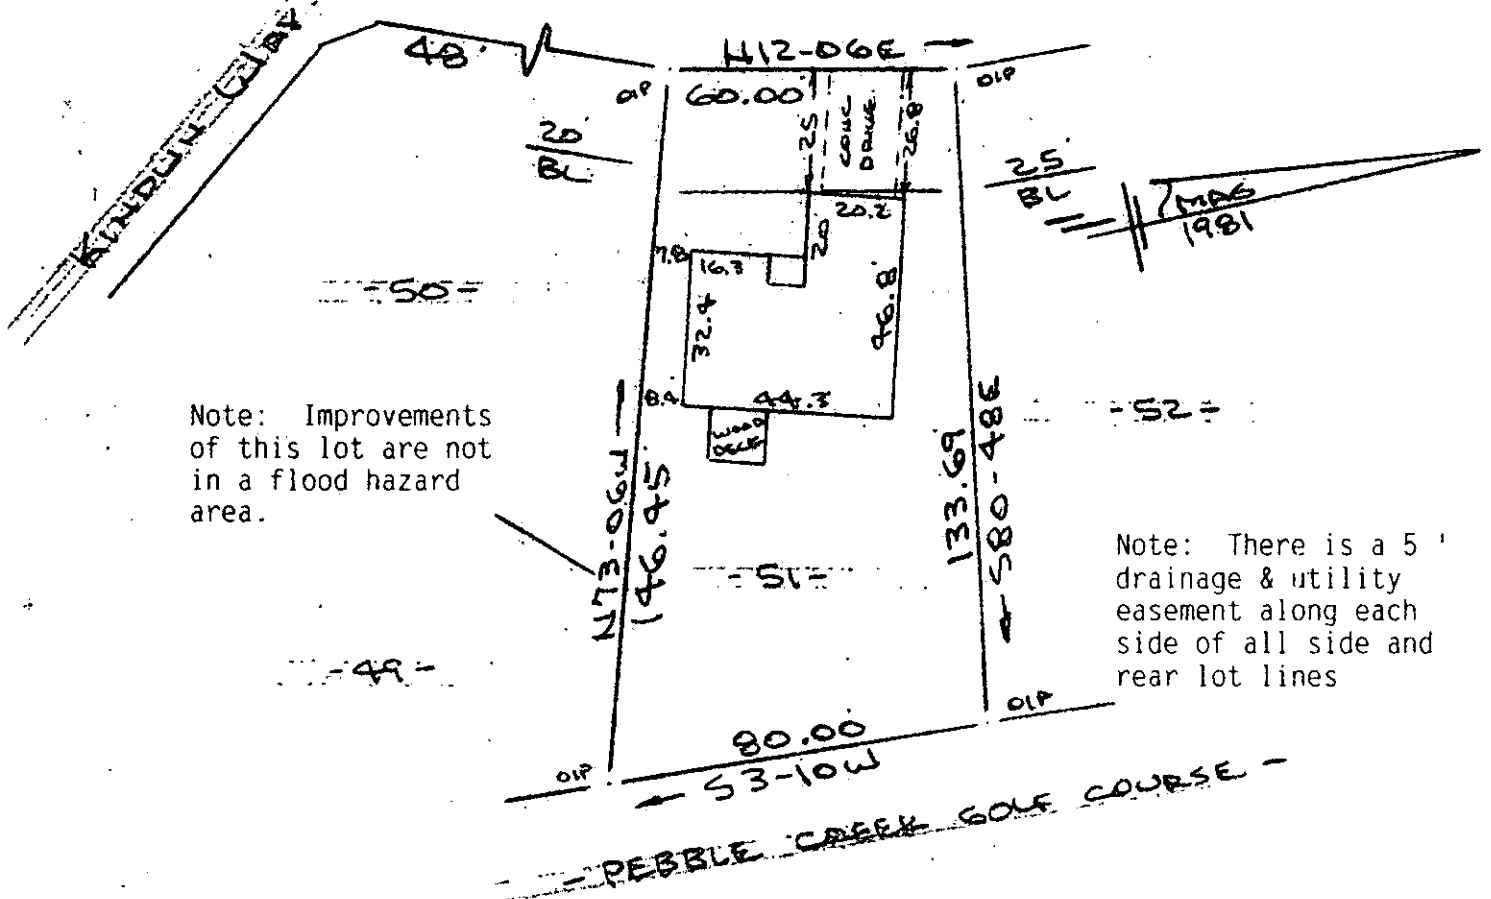 KINDLIN WAY
48'
N12-06E
OIP
60.00
OIP
20'
BL
25
CONC
DRIVE
26.8
25'
BL
MAG
1981
20.2
20
7.8
16.3
-50-
32.4
46.8
8.4
44.3
WOOD
DECK
-52-
Note: Improvements
of this lot are not
in a flood hazard
area.
N73-06W
146.45
133.69
S80-48E
-51-
Note: There is a 5 '
drainage & utility
easement along each
side of all side and
rear lot lines
-49-
OIP
80.00
OIP
S3-10W
- PEBBLE CREEK GOLF COURSE -